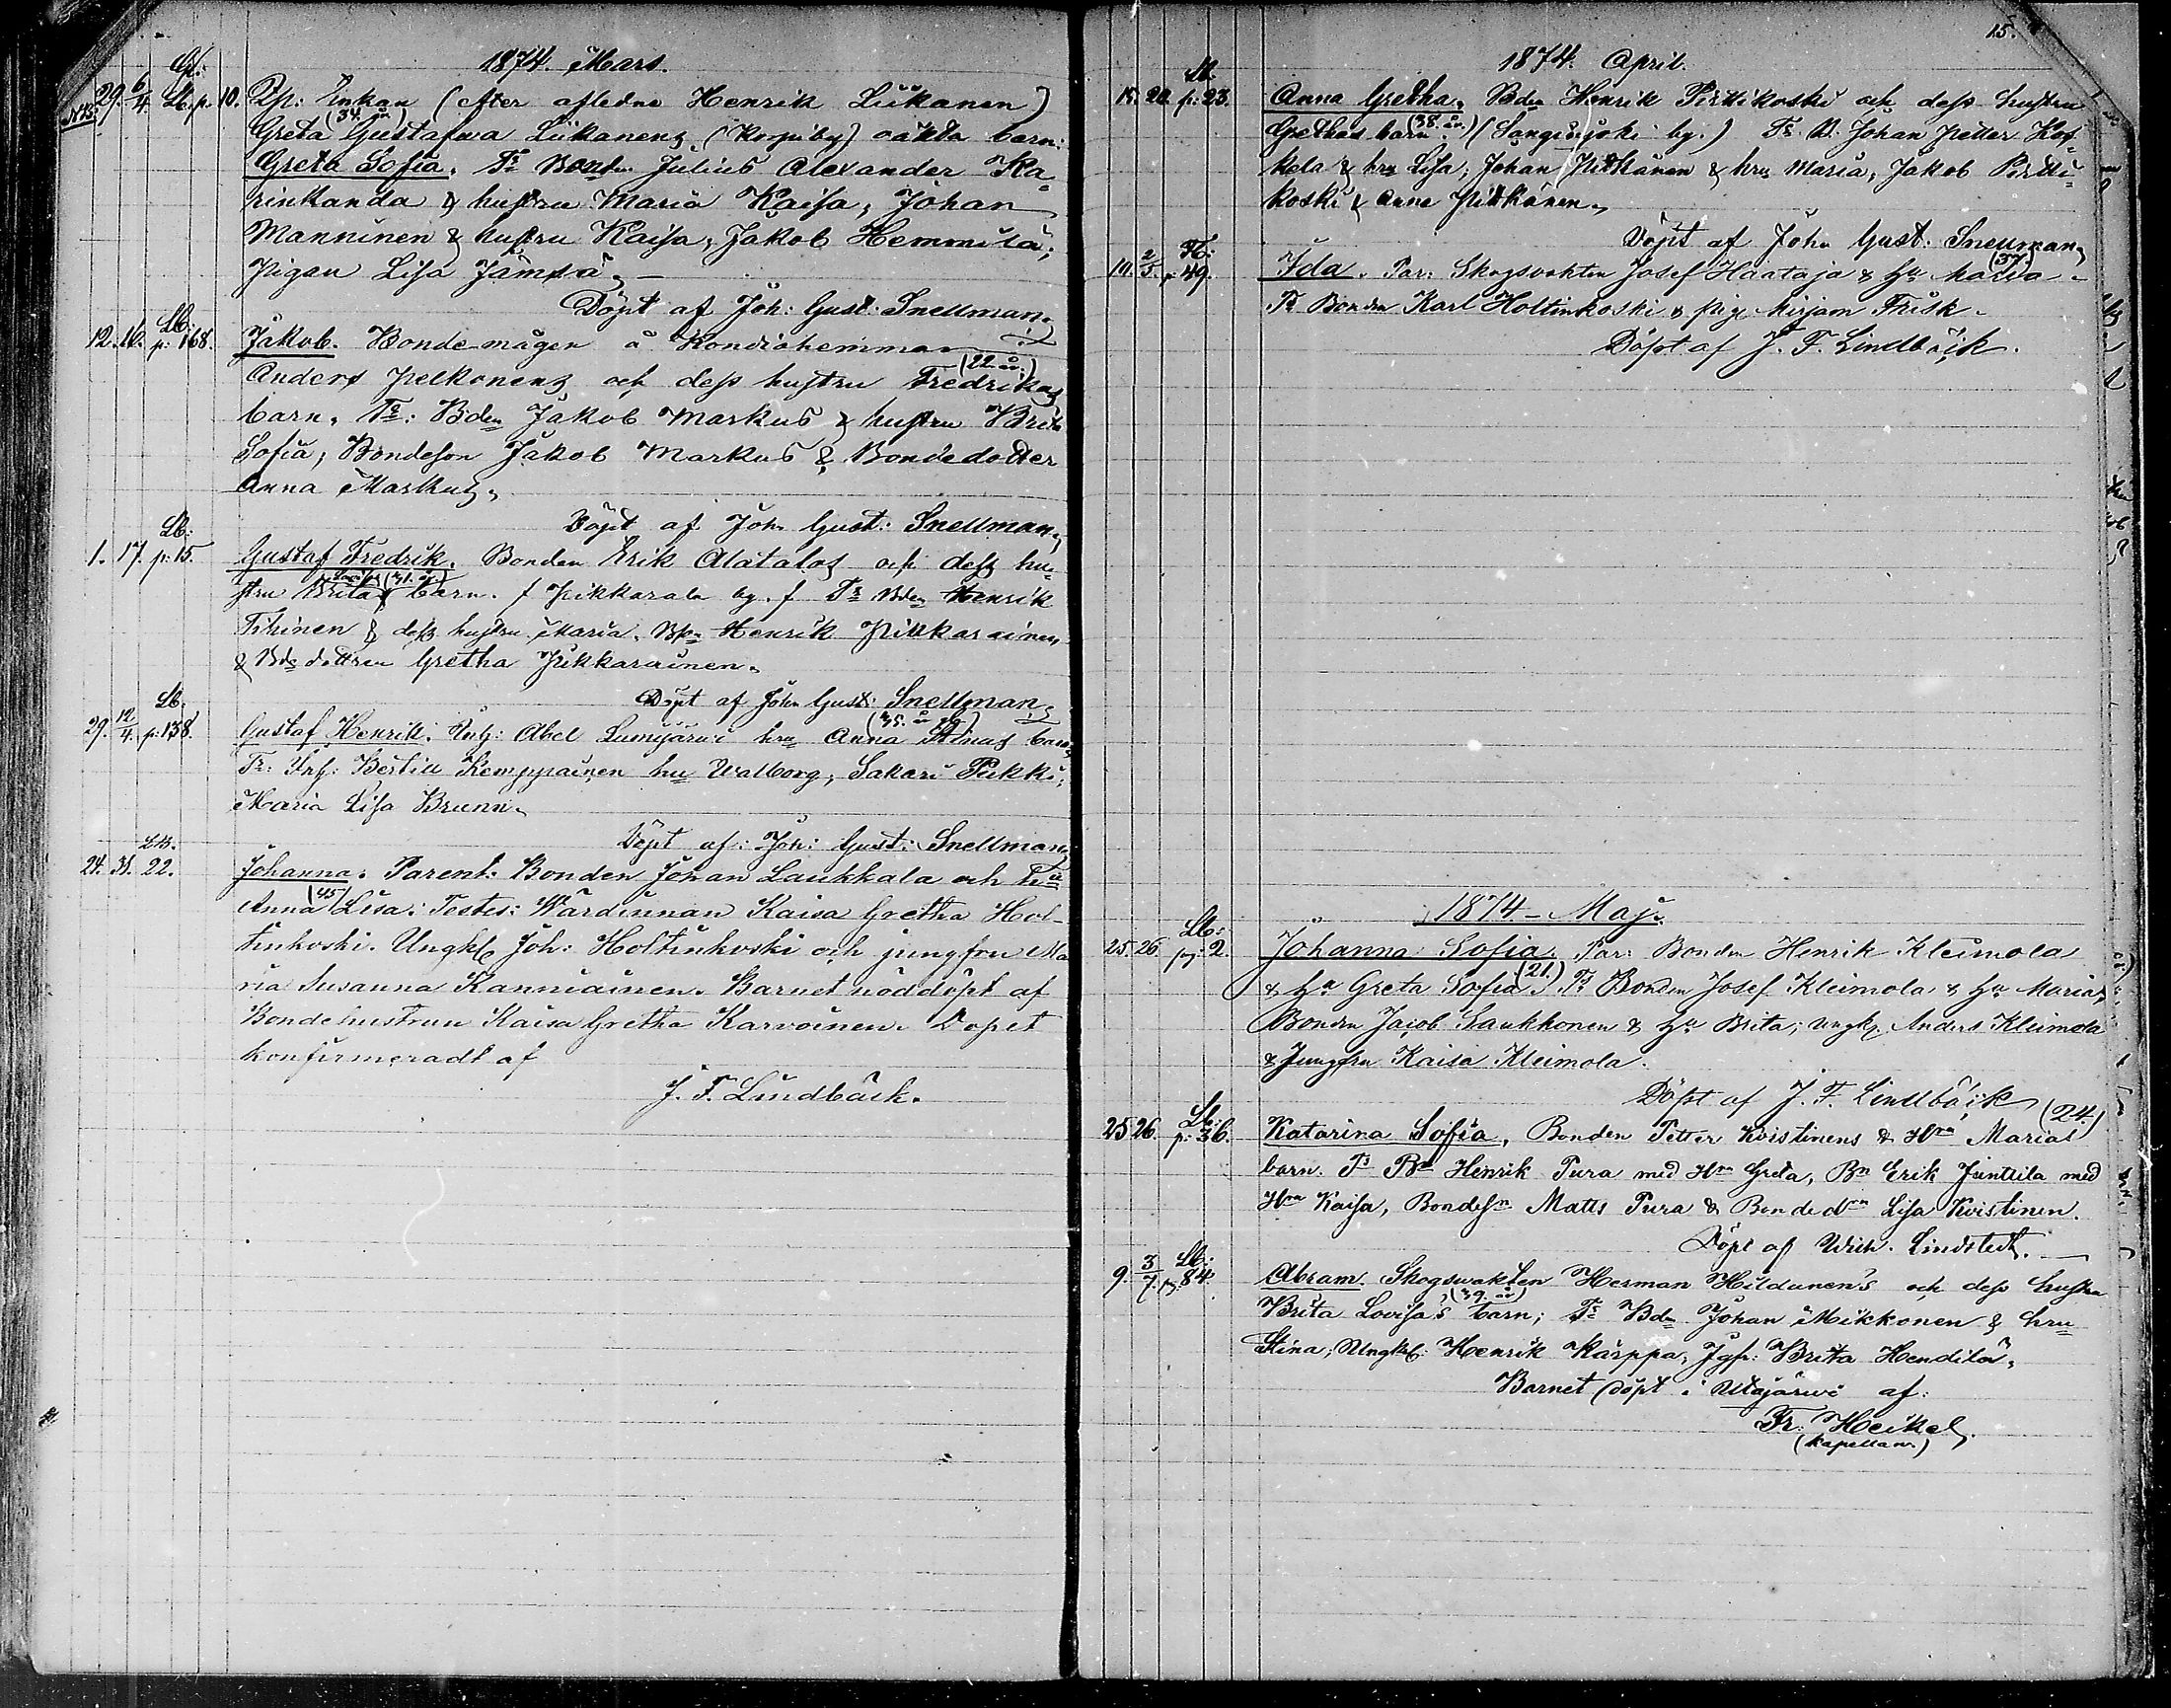 1874. Mars.
N:15. 29. 6/4. Lb. p. 10. Enkan (efter aflidne Henrik Liikanen)
(34. år)
Greta Gustafwa Liikanens, (Korpiby) oäkta barn:
Greta Sofia. Ts Bonden Julius Alexander Ka=
rinkanda & hustru Maria Kaisa, Johan
Manninen & hustru Kaisa, Jakob Hemmilä;
Pigan Lisa Jämsä.
Döpt af Joh: Gust: Snellman.
12. 16. Lb: p: 168. Jakob. Bonde-mågen å Kondiohemman
(22 år)
Anders Pelkonens och dess hustru Fredrikas
barn. Ts: Bden Jakob Markus & hustru Brita
Sofia, Bondeson Jakob Markus & Bondedotter
Anna Markus.
Döpt af Joh Gust: Snellman.
1. 17. Lb: p: 15. Gustaf Fredrik. Bonden Erik Alatalos och dess hu=
(41. år)
stru Britas barn. Pikkarala by. Ts Bden Henrik
Tihinen & dess hustru Maria. Henrik Pikkarainen
& dottren Gretha Pikkarainen.
Döpt af John Gust: Snellman
29. 12/4. Lb. p: 138. Gustaf Henrik. Inh: Abel Lumijärwi hru Anna Stinas barn
Ts: Inh: Bertill Kemppainen hu Walborg, Sakari Pukki;
Maria Lisa Brunn.
Döpt af: Joh: Gust: Snellman
24. 31. Lb. 22. Johanna. Parent: Bonden Johan Laukkala och hu
(45)
Anna Lisa: Testes: Wärdinnan Kaisa Gretha Hol-
tinkoski. Ungkl Joh: Holtinkoski och jungfru Ma
ria Susanna Kanniainen. Barnet nöddöpt af
Bondehustrun Kaisa Gretha Karvoinen. Dopet
konfirmeradt af
J. F. Lindbäck.
15.
1874. April.
15. 20. Lb. p: 23. Anna Gretha. Bden Henrik Pirttikoski och dess hustru
(38. år.)
Grethas barn. (Sanginjoki by.) Ts. B. Johan Petter Kos=
kela & hru Lisa, Johan Pitkänen & hru Maria, Jakob Pirtti=
koski & Anna Pitkänen.
Döpt af John Gust: Snellman
(37)
10. 2/5. p. 49. Ida. Par: Skogsvakten Josef Haataja & Hu Maria.
Ts Bonden Karl Holtinkoski & pig. Mirjam Frisk.
Döpt af J. F. Lindbäck.
1874 - Maj.
25. 26. Lb: p: 2. Johanna Sofia. Par: Bonden Henrik Kleimola
(21.)
& Hu Greta Sofia. Ts Bonden Josef Kleimola & Hu Maria,
Bonden Jacob Laukkonen & Hu Brita, ungk. Anders Kleimola
& Jungfru Kaisa Kleimola.
Döpt af J. F. Lindbäck
(24.)
25 26. Lb. p: 36. Katarina Sofia, Bonden Petter Kvistinens & Hru Marias
barn. Ts Bn Henrik Pura med Hru Greta, Bn Erik Junttila med
Hru Kaisa, Bondesn Matts Pura & Bondedrn Lisa Kvistinen.
Döpt af Wilh. Lindstedt.
9. 3/7. Lb: p. 84. Abram. Skogswakten Herman Hildunen's och dess hustru
(39. år)
Brita Lovisa's barn; Ts Bdn Johan Mikkonen & hru
Stina; Ungkl: Henrik Karppa, Jgfr: Brita Hendilä.
Barnet döpt i Utajärwi af:
Fr: Heikel.
(Kapellan)